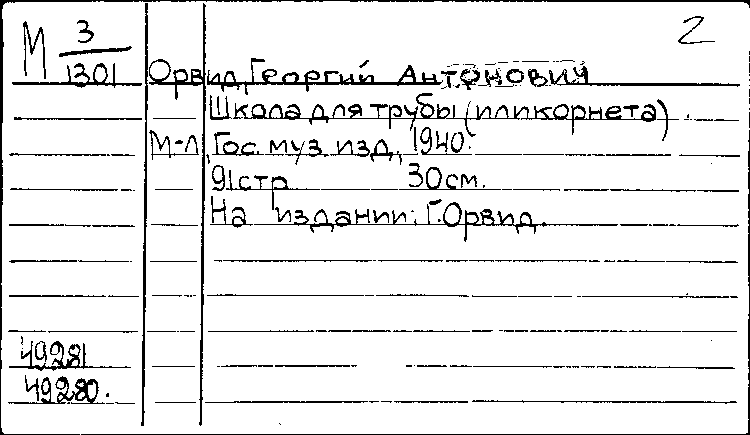 М 3 2
1301 Орвид, Георгий Антонович
Школа для трубы (или корнета).
М-Л, Гос. муз. изд., 1940.
91 стр. 30 см.
На издании: Г. Орвид.
49281
49280.